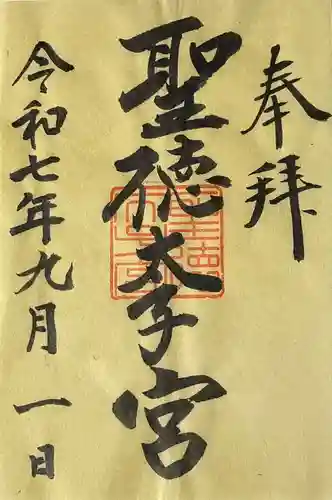 奉拝
聖徳太子宮
令和七年九月一日